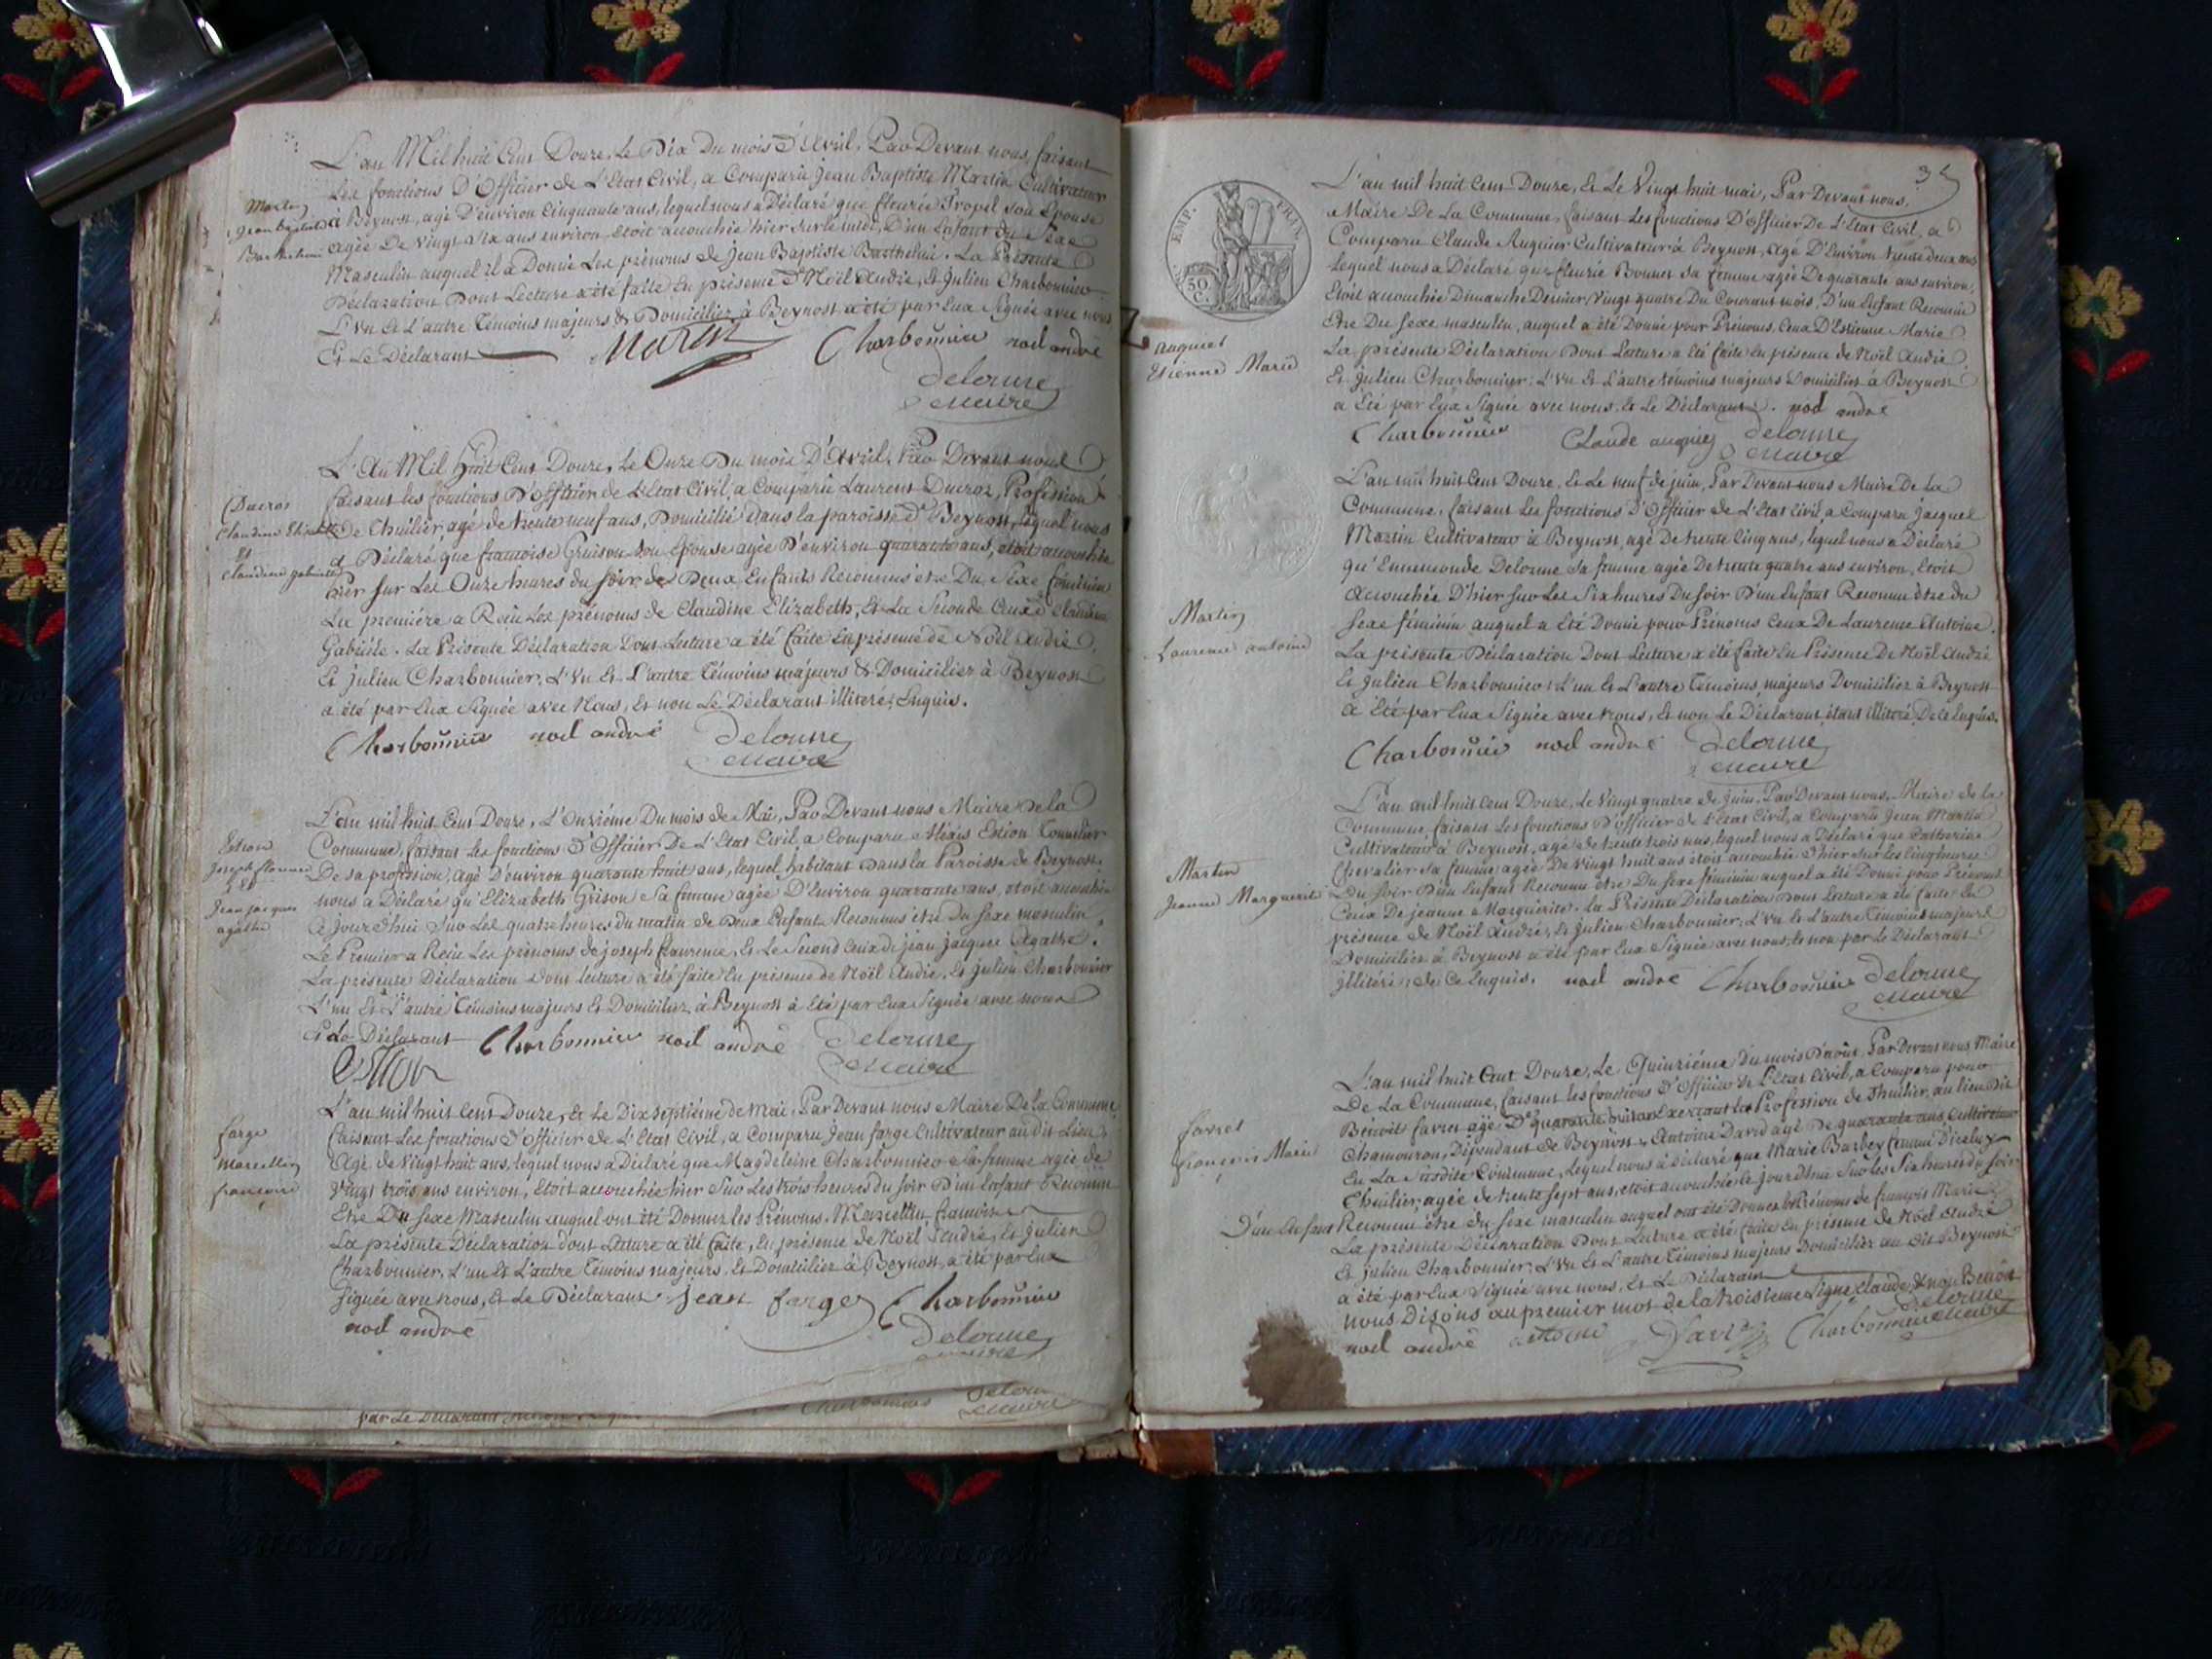 L'an Mil huit Cent Douze, Le Dix Du mois D'Avril, Par Devant nous, faisant
Les fonctions D'Officier de L'Etat Civil, a Comparu Jean Baptiste Martin Cultivateur
à Beynost, agé D'environ Cinquante ans, lequel nous a Déclaré que fleurie Tropel Son Epouse
agée De vingt Six ans environ, étoit accouchée hier Sur le midi, D'un Enfant du Sexe
Masculin auquel il a Donné Les prénoms de Jean Baptiste Barthelmi. La Présente
Déclaration Dont Lecture a été faite En présence D'Noël André, Et Julien Charbonnier
L'un Et L'autre Témoins majeurs & Domiciliez à Beynost a été par Eux Signée avec nous
Et Le Déclarant
Martin
Jean Baptiste
Barthelmi
Martin Charbonnier noel andré
Delorme
maire
L'An Mil Huit Cent Douze, Le Onze Du mois D'Avril, Par Devant nous
faisant les fonctions D'Officier de L'Etat Civil, a Comparu Laurent Ducroz, Profession
De Thuilier, agé de trente neuf ans, Domicilié dans la paroisse D' Beynost, lequel nous
a Déclaré, que francoise Gruison Son Epouse agée D'environ quarante ans, étoit accouchée
hier Sur Les Onze heures du Soir de Deux Enfants Reconnus etre Du Sexe féminin
La première a Reçu Les prénoms de Claudine Elizabeth, Et La Seconde Ceux D' Claudine
Gabriéle. La Présente Déclaration Dont Lecture a été faite En présence de Noël André,
Et Julien Charbonnier, L'un Et L'autre Témoins majeurs & Domiciliez à Beynost
a été par Eux Signée avec Nous, Et non Le Déclarant illiteré, Enquis.
Ducroz
Claudine Elizabeth
Et
Claudine gabriele
Charbonnier noel andré Delorme
maire
L'an mil huit Cent Douze, L'Onzième Du mois de Mai, Par Devant nous Maire De la
Commune, faisant Les fonctions D'Officier De L'Etat Civil, a Comparu Aléxis Estion Tonnelier
De sa profession, agé D'environ quarante huit ans, lequel habitant Dans la Paroisse de Beynost,
nous a Déclaré qu'Elizabeth Grison Sa femme agée D'Environ quarante ans, étoit accouchée
Ce Jourd'hui Sur Les quatre heures du matin de Deux Enfants Reconnus être du Sexe masculin,
Le Premier a Reçu Les prénoms de joseph flaurence, Et Le Second Ceux de jean jacques Agathe.
La présente Déclaration Dont lecture a été faite En présence de Noël André, Et Julien Charbonnier
L'un Et L'autre Témoins majeurs Et Domiciliez à Beynost a Eté par Eux Signée avec nous
Et Le Déclarant
Estion
Joseph florence
Et
Jean jacques
agathe
Charbonnier noel andré Delorme
maire
Estion
L'an mil huit Cent Douze, Et Le Dix Septième de Mai, Par Devant nous Maire De la Commune
faisant Les fonctions D'officier de L'Etat Civil, a Comparu Jean farge Cultivateur au dit Lieu
Agé de Vingt huit ans, lequel nous a Déclaré que Magdeleine Charbonnier Sa femme agée de
Vingt trois ans environ, Etoit accouchée hier Sur Les trois heures du Soir D'un Enfant Reconnu
Etre Du Sexe Masculin auquel ont été Donnez les Prénoms, Marcellin francois
La présente Déclaration dont Lecture a été faite, En présence de Noël André, Et Julien
Charbonnier, L'un Et L'autre Témoins majeurs, Et Domiciliez à Beynost, a été par Eux
Signée avec nous, Et Le Déclarant.
farge
Marcellin
françois
jean farge Charbonnier
noel andré Delorme
maire
par Le Déclarant
Charbonnier Delorme
maire
35
EMP. FRAN.
50 C.
L'an mil huit Cent Douze, Et Le Vingt huit mai, Par Devant nous,
Maire De La Commune, faisant Les fonctions D'Officier De L'Etat Civil, a
Comparu Claude Auquier Cultivateur à Beynost, Agé D'Environ trente deux ans
Lequel nous a Déclaré que fleurie Bonnet Sa femme agée De quarante ans environ,
Etoit accouchée Dimanche Dernier, Vingt quatre Du Courant mois, D'un Enfant Reconnu
Etre Du Sexe masculin, auquel a été Donné pour Prénoms, Ceux D'Estienne Marie
La présente Déclaration Dont Lecture a Eté faite En présence de Noël André,
Et Julien Charbonnier, L'un Et L'autre témoins majeurs Domiciliez à Beynost
a Eté par Eux Signée avec nous, Et Le Déclarant. noel andré
auquier
Etienne Marie
Charbonnier Claude auquier Delorme
maire
L'an mil huit Cent Douze, Et Le neuf de juin, Par Devant nous Maire De La
Commune, faisant Les fonctions D'Officier de L'Etat Civil, a Comparu Jacques
Martin Cultivateur à Beynost, agé De trente Cinq ans, lequel nous a Déclaré
qu'Emmonde Delorme Sa femme agée De trente quatre ans environ, Etoit
Accouchée D'hier Sur Les Six heures Du Soir D'un Enfant Reconnu être du
Sexe féminin auquel a Eté Donné pour Prénoms Ceux De Laurence Antoine.
La présente Déclaration Dont Lecture a été faite En Présence De Noël André
Et Julien Charbonnier, L'un Et L'autre Témoins, majeurs Domiciliez à Beynost
a Eté par Eux Signée avec nous, Et non Le Déclarant étant illiteré, De ce Enquis.
Martin
Laurence antoine
Charbonnier noel andré Delorme
maire
L'an mil huit Cent Douze, Le Vingt quatre de juin, Par Devant nous, Maire de la
Commune, faisant Les fonctions D'officier de L'Etat Civil, a Comparu Jean Martin
Cultivateur à Beynost, agé de trente trois ans, lequel nous a Déclaré que Catherine
Chevalier Sa femme agée De vingt huit ans étoit accouchée d'hier Sur les Cinq heures
Du Soir D'un Enfant Reconnu être Du Sexe féminin auquel a été Donné pour Prénoms
Ceux De jeanne Marguerite. La Présente Déclaration Dont Lecture a été faite En
présence de Noël André, Et Julien Charbonnier, L'un Et L'autre Témoins majeurs
Domiciliez à Beynost a été par Eux Signée avec nous, Et non par Le Déclarant
illiteré, de Ce Enquis. noel andré Charbonnier Delorme
maire
Martin
Jeanne Marguerite
L'an mil huit Cent Douze, Le Quinzième du mois D'août, Par Devant nous Maire
De La Commune, faisant les fonctions D'Officier de L'Etat Civil, a Comparu pour
Benoit favret agé D' quarante huit ans Exerçant la Profession de Thuilier, au lieu Dit
Chamouron, Dépendant de Beynost, Antoine David agé De quarante ans, Cultivateur
En La Susdite Commune, Lequel nous a déclaré que Marie Barbey femme Dicelui
Thuilier, agée de trente Sept ans, étoit accouchée le jourd'hui Sur les Six heures du Soir
D'un Enfant Reconnu être du Sexe masculin auquel ont été Donnés les Prénoms de françois Marie
La présente Déclaration Dont Lecture a été faite En présence de Noël André
Et Julien Charbonnier, L'un Et L'autre Témoins majeurs Domiciliez au dit Beynost
a été par Eux Signée avec nous, Et Le Déclarant
nous Disons au premier mot de la troisieme ligne Claude, & non Benoît
favret
françois Marie
noel andré antoine David Charbonnier Delorme maire